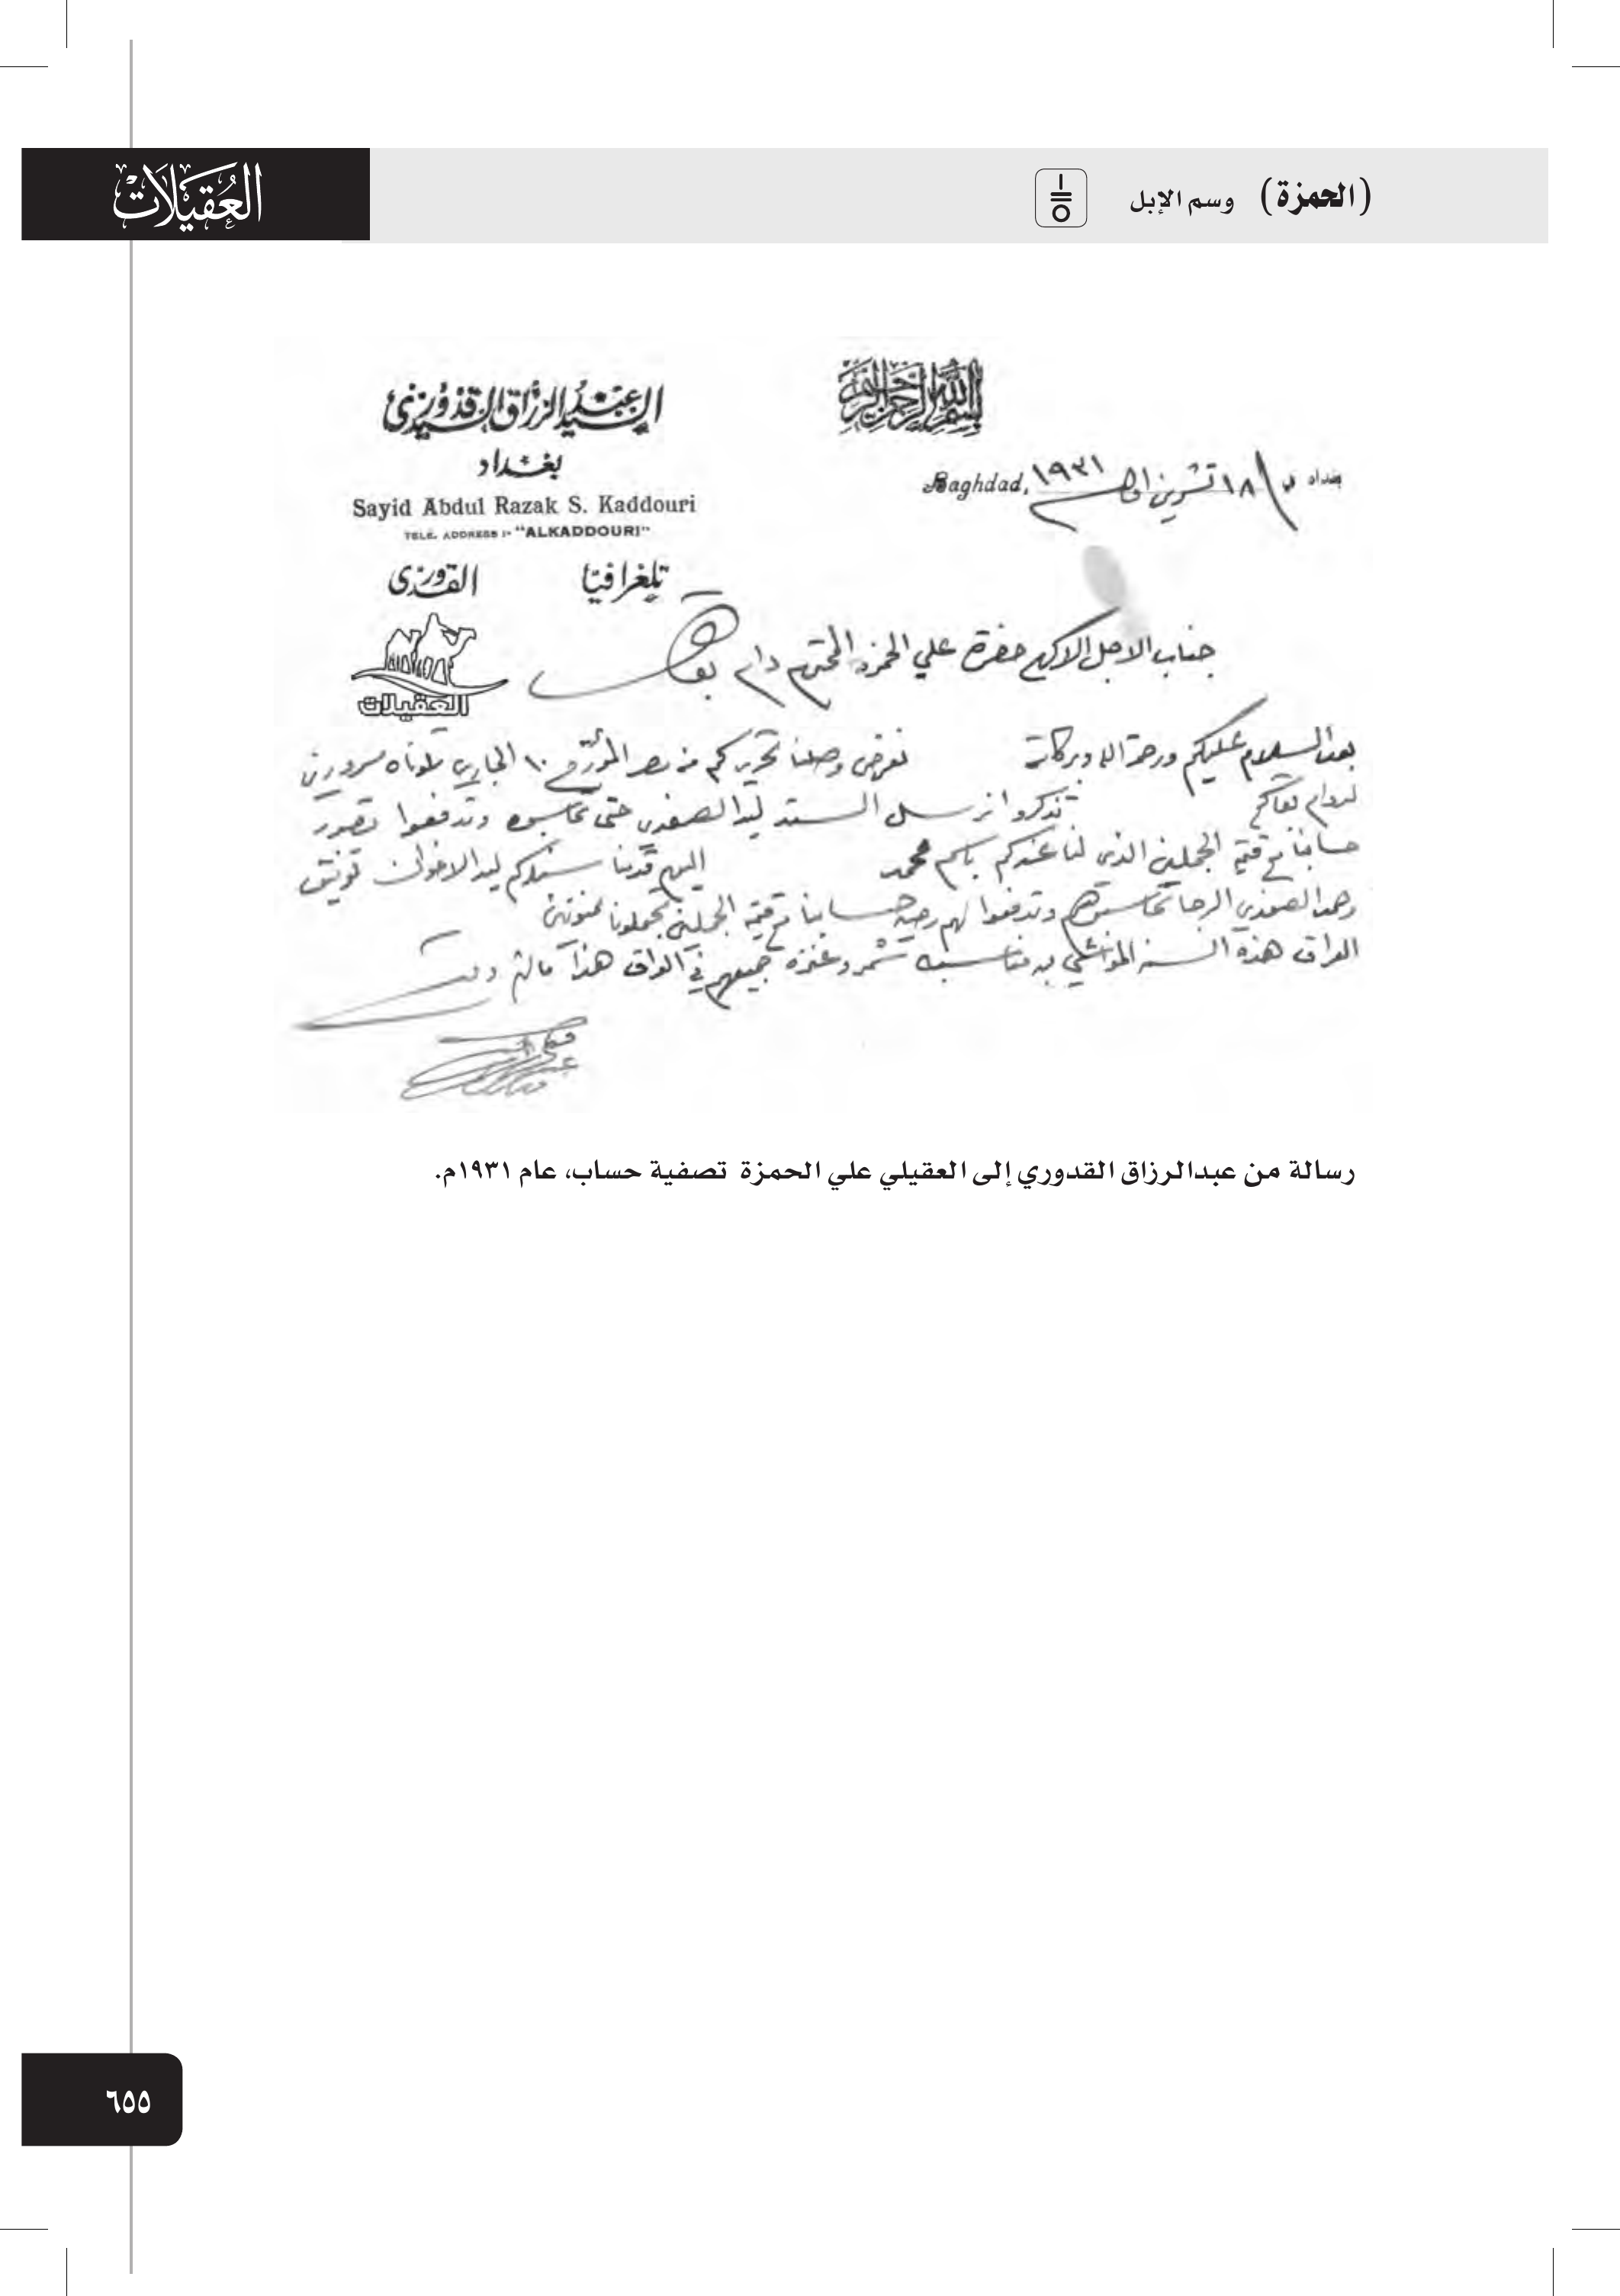 (الحمزة) وسم الإبل
العقيلات
بسم الله الرحمن الرحيم
السيد عبد الرزاق السيد قدوري
بغداد
Sayid Abdul Razak S. Kaddouri
TELE. ADDRESS :- "ALKADDOURI"
تلغرافيا القدوري
العقيلات
بغداد في ١٨ تشرين اول ١٩٣١ Baghdad,
جناب الاجل الاكرم حضرة علي الحمزه المحترم دام بقاه
بعد السلام عليكم ورحمة الله وبركاته نعرض وصلنا تحريركم من مصر المؤرخ ١٠ الجاري تلوناه مسرورين
لدوام بقاكم تذكروا نرسل السند ليد الصفدي حتى تحاسبوه وتدفعوا
حسابنا مع قيمة الجملين الذي لنا عندكم باسم محمد اليوم قدمنا سندكم ليد الاخوان توفيق
وحمد الصفدي الرجا تحاسبوهم وتدفعوا لهم حسابنا مع قيمة الجملين تجعلونا ممنونين
العراق هذه السنه المواشي به مناسبه شمر وعنزه جميعهم في العراق هذا مالزم ودمت
رسالة من عبدالرزاق القدوري إلى العقيلي علي الحمزة تصفية حساب، عام ١٩٣١م.
٦٥٥